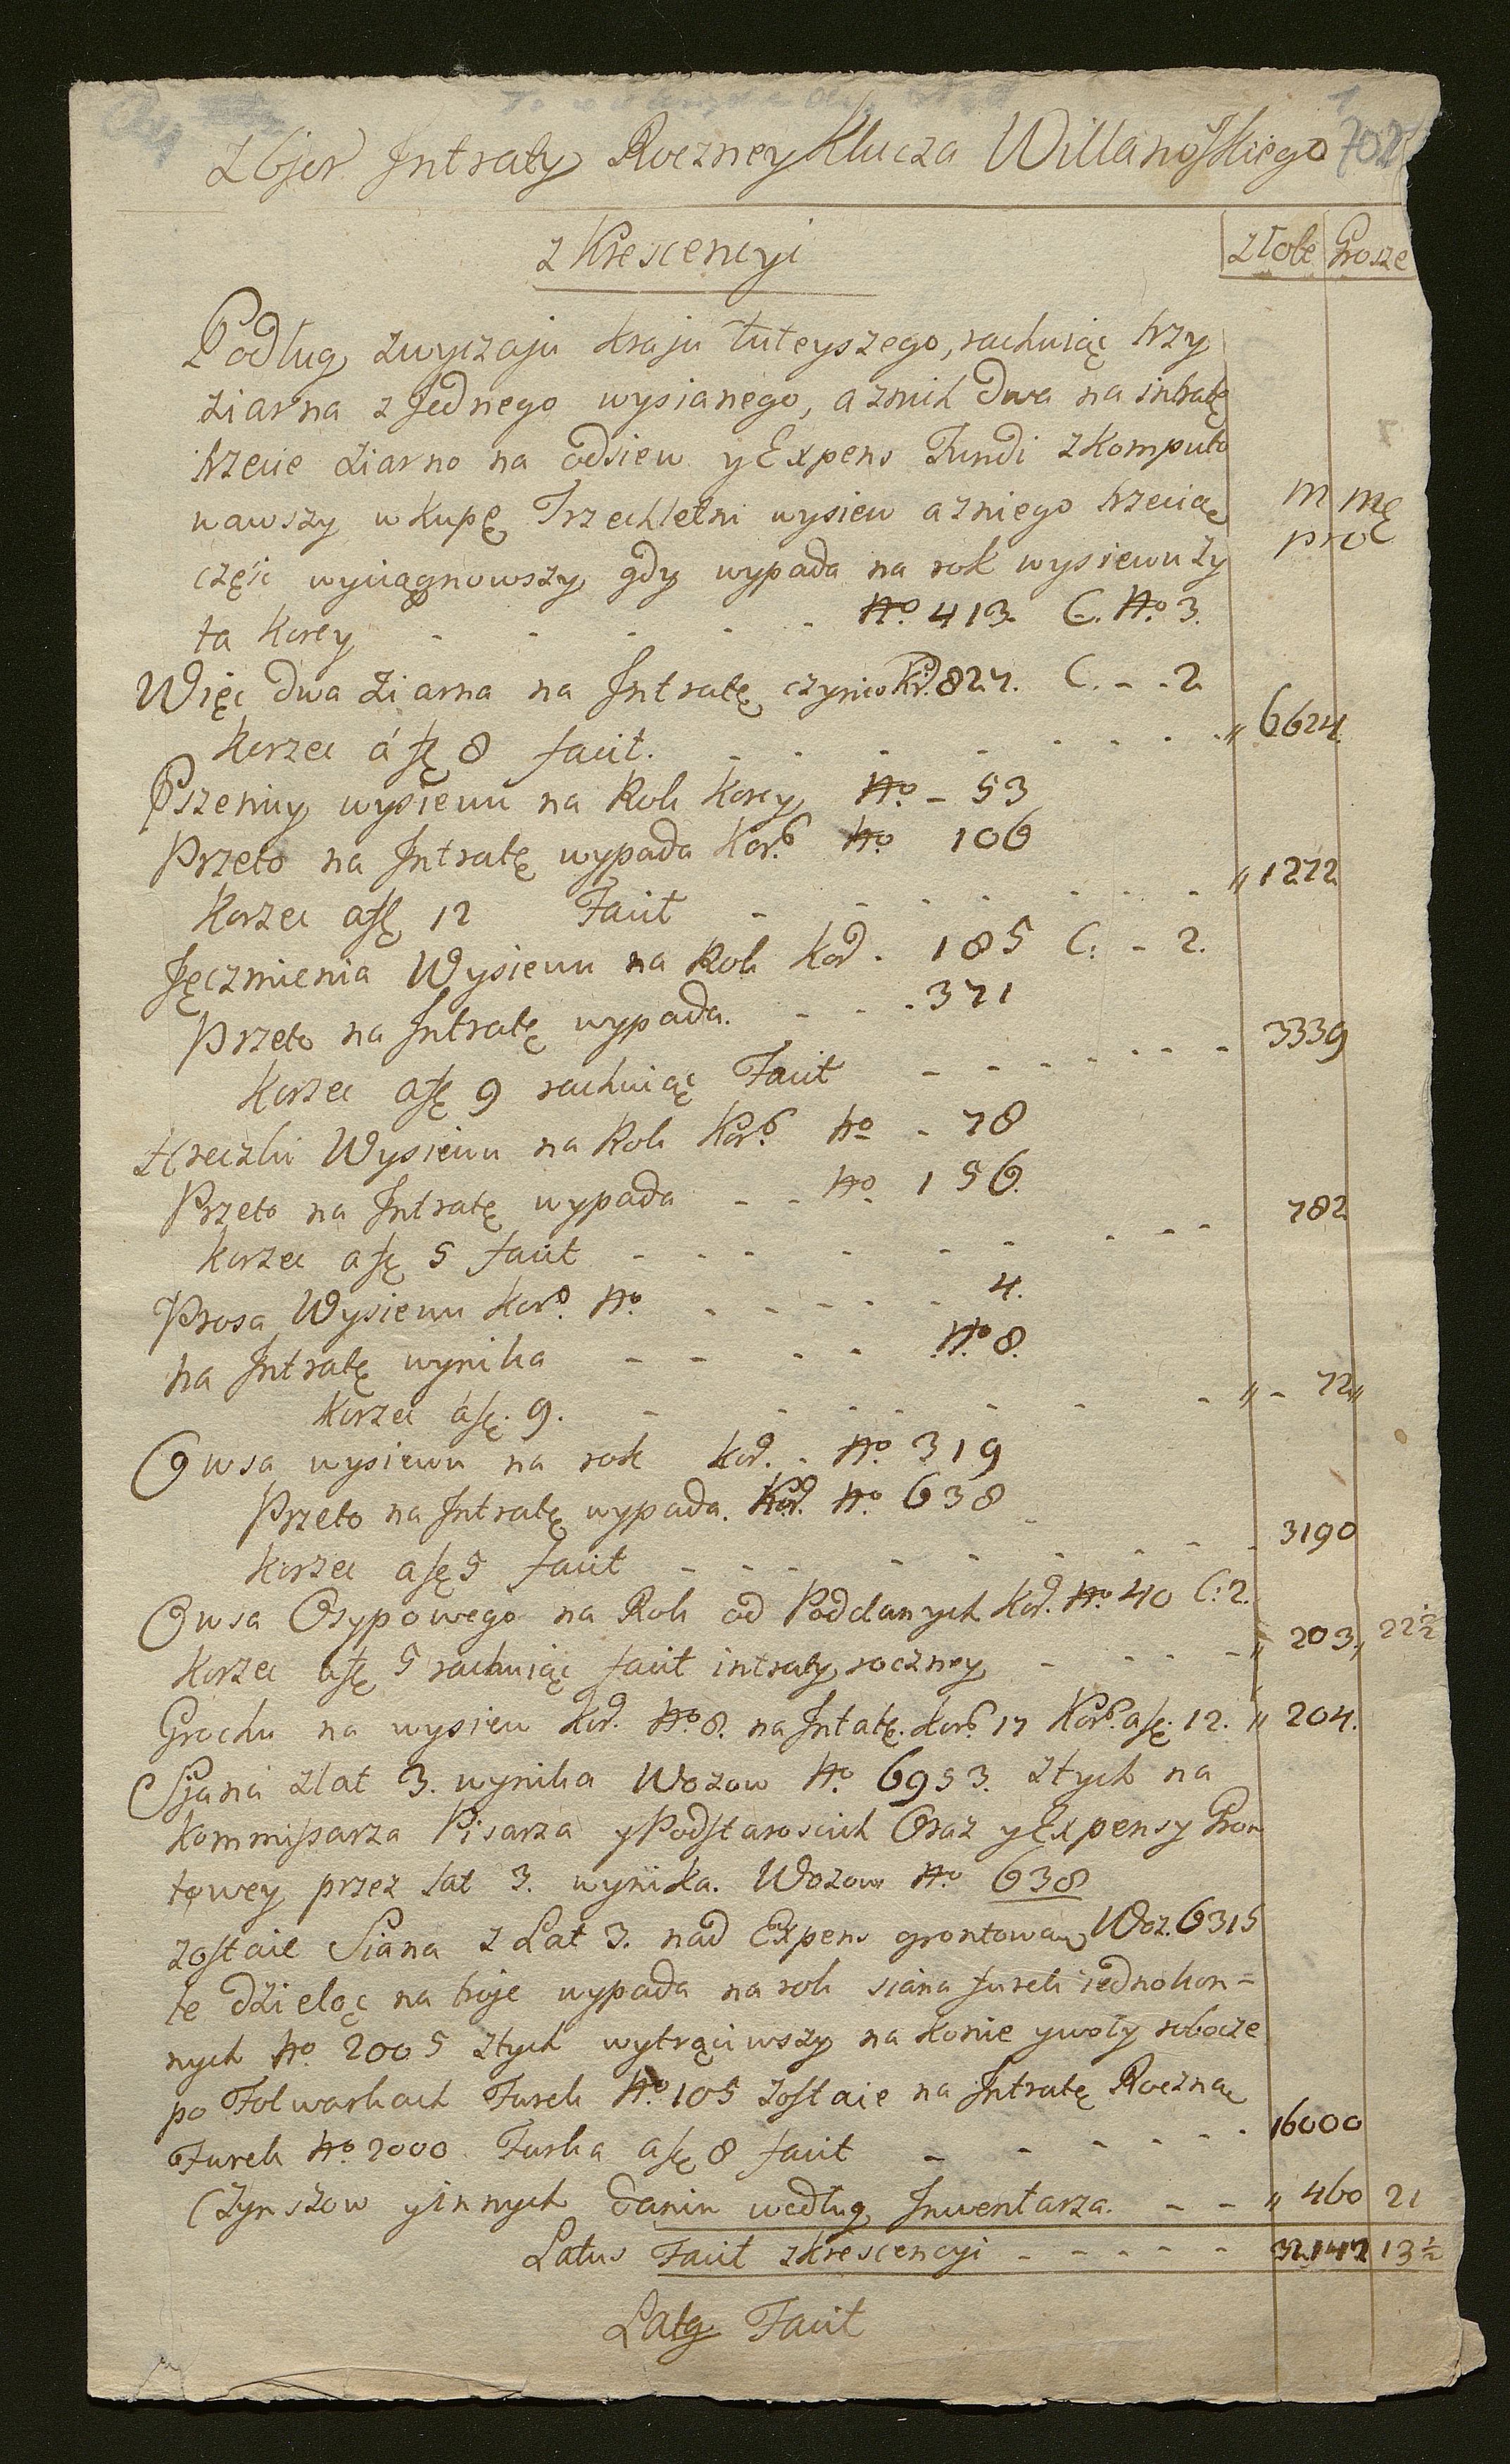 Zbjor Intraty Roczney Klucza Willanoskiego 702
z Krescencyi
złote Grosze
Podług zwyczaju kraju tuteyszego, rachuiąc trzy
ziarna z Jednego wysianego, a znich dwa na intratę
trzecie ziarno na odsiew y Expens Fundi zkomputo
wawszy w kupę Trzechletni wysiew a zniego trzecią
część wyciągnowszy gdy wypada na rok wysiewu ży
ta korcy - - - - - No 413. C. No 3.
Więc dwa ziarna na Intratę czynią Kor. 827. C. - - 2
korzec á fl 8 facit. - - - - - - - - " 6624.
Pszenicy wysiewu na Rok korcy No - 53
Przeto na Intratę wypada Kor. No 106
Korzec a fl 12 Facit - - - - - - " 1272
Jęczmienia Wysiewu na Rok Kor. 185 C: - 2.
Przeto na Intratę wypada. - - - 371
Korzec a fl 9 rachuiąc Facit - - - - - - - 3339
Hreczki Wysiewu na Rok Kor. No - 78
Przeto na Intratę wypada - - No. 156.
Korzec a fl 5 facit - - - - - - - - - 782
Prosa Wysiewu Kor. No - - - - - 4.
na Intratę wynika - - - - No 8.
Korzec á fl. 9. - - - - - - - - " - 72 "
Owsa wysiewu na rok kor. - No. 319
Przeto na Intratę wypada. Kor. No. 638
korzec a fl 5 facit - - - - - - - - - 3190
Owsa Osypowego na Rok od Poddanych Kor. No. 40 C: 2.
Korzec a fl 5 rachuiąc facit intraty roczney - - - - " 203, 22 ½
Grochu na wysiew Kor. No. 8. na Intatę. kor. 17 Kor. a fl. 12. " 204.
Sjana zlat 3. wynika Wozow No. 6953. ztych na
Kommissarza Pisarza y Podstarościch Oraz y Expensy Gron
towey przez lat 3. wynika. Wozow No 638
zostaie Siana z Lat 3. nad Expens grontową Woz. 6315
te dzieląc na troje wypada na rok siana furek iednokon=
nych No. 2005 ztych wytrąciwszy na konie y woły robocze
po Folwarkach Furek No. 105 zostaie na Intratę Roczną
Furek No. 2000. Furka a fl 8 facit - - - - - - 16000
Czynszow y Innych danin według Inwentarza. - - " 460 21
Latus Facit z krescencyi - - - - - 32.147 13 ½
Latg Facit